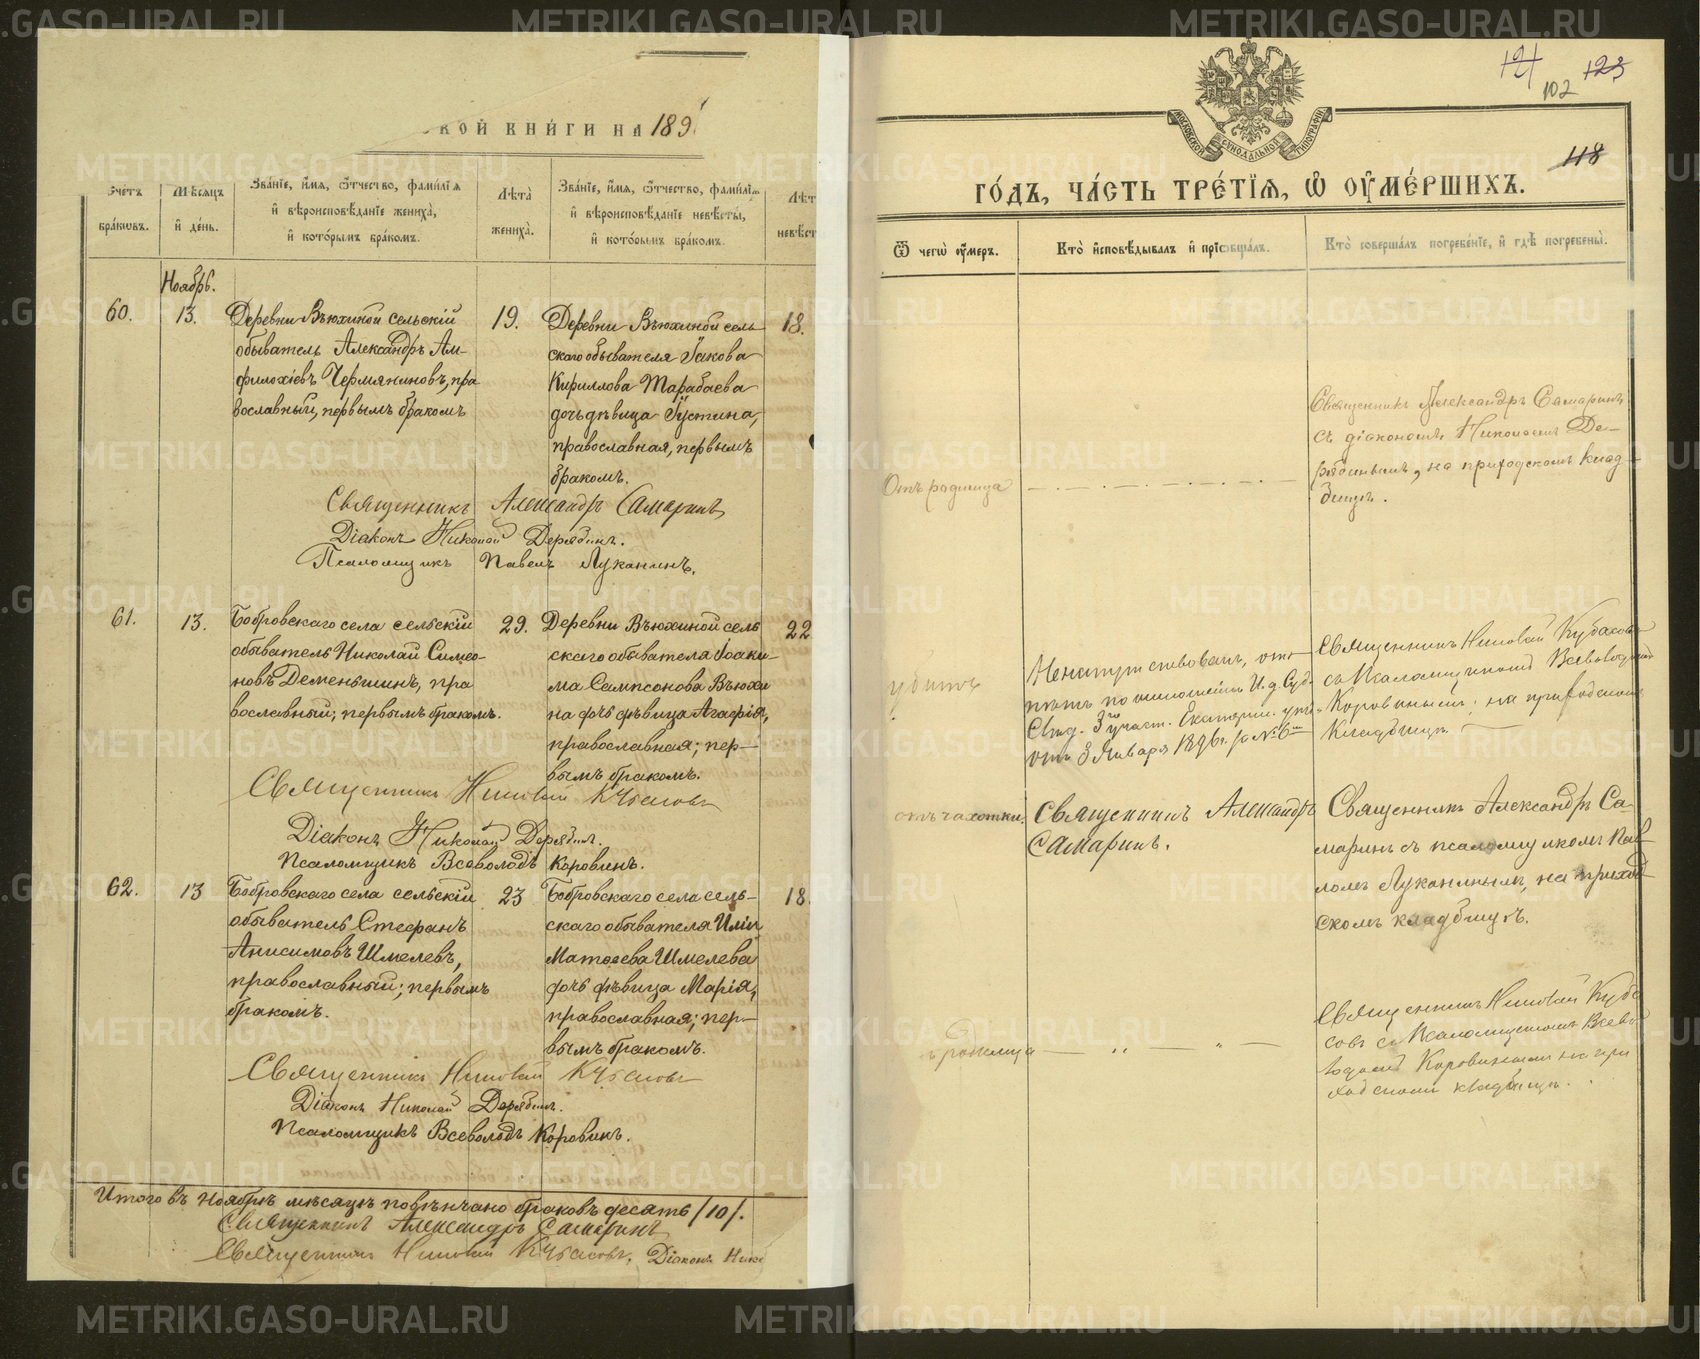 кой книги на 189
Счетъ браковъ.
Мѣсяцъ и день.
Званіе, имя, отчество, фамилія и вѣроисповѣданіе жениха, и которымъ бракомъ.
Лѣта жениха.
Званіе, имя, отчество, фамилія и вѣроисповѣданіе невѣсты, и которымъ бракомъ.
Лѣт невѣст
Ноябрь.
60.
13.
Деревни Вьюхиной сельскій
обыватель Александръ Ам-
филохіевъ Чермяниновъ, пра
вославный, первымъ бракомъ
19.
Деревни Вьюхиной сель
скаго обывателя Іакова
Кириллова Тарабаева
дочь дѣвица Іустина,
православная, первымъ
бракомъ.
18.
Священникъ Александръ Самаринъ
Діаконъ Николай Дерябинъ.
Псаломщикъ Павелъ Луканинъ.
61.
13.
Бобровскаго села сельскій
обыватель Николай Симео-
новъ Деменьшинъ, пра
вославный; первымъ бракомъ.
29.
Деревни Вьюхиной сель
скаго обывателя Іоаки-
ма Сампсонова Вьюхи
на дочь дѣвица Агафія,
православная; пер-
вымъ бракомъ.
22
Священникъ Николай Кубасовъ
Діаконъ Николай Дерябинъ.
Псаломщикъ Всеволодъ Коровинъ.
62.
13
Бобровскаго села сельскій
обыватель Стефанъ
Анисимовъ Шмелевъ,
православный; первымъ
бракомъ.
23
Бобровскаго села сель-
скаго обывателя Иліи
Матѳеева Шмелева
дочь дѣвица Марія,
православная; пер-
вымъ бракомъ.
18.
Священникъ Николай Кубасовъ
Діаконъ Николай Дерябинъ.
Псаломщикъ Всеволодъ Коровинъ.
Итого въ Ноябрѣ мѣсяцѣ повѣнчано браковъ десять /10/.
Священникъ Александръ Самаринъ
Священникъ Николай Кубасовъ. Діаконъ Нико
121
102
123
118
Московской Сѵнодальной Типографіи
годъ, часть третія, ѿ оумершихъ.
Ѿ чегѡ оумеръ.
Кто исповѣдывалъ и пріобщалъ.
Кто совершалъ погребеніе, и гдѣ погребены.
Отъ родимца
Священникъ Александръ Самаринъ
съ діакономъ Николаемъ Де-
рябинымъ, на приходскомъ клад-
бищѣ.
убитъ
от 3 Января 1896 г. за № 6
Священникъ Николай Кубасовъ
съ Псаломщикомъ Всеволодомъ
Коровинымъ; на приходскомъ
Кладбищѣ.
отъ чахотки.
Священникъ Александръ
Самаринъ.
Священникъ Александръ Са-
маринъ съ псаломщикомъ Пав-
ломъ Луканинымъ, на приход-
скомъ кладбищѣ.
ъ родимца
Священникъ Николай Куба
совъ съ Псаломщикомъ Всево
лодомъ Коровинымъ на при
ходскомъ кладбищѣ.
METRIKI.GASO-URAL.RU